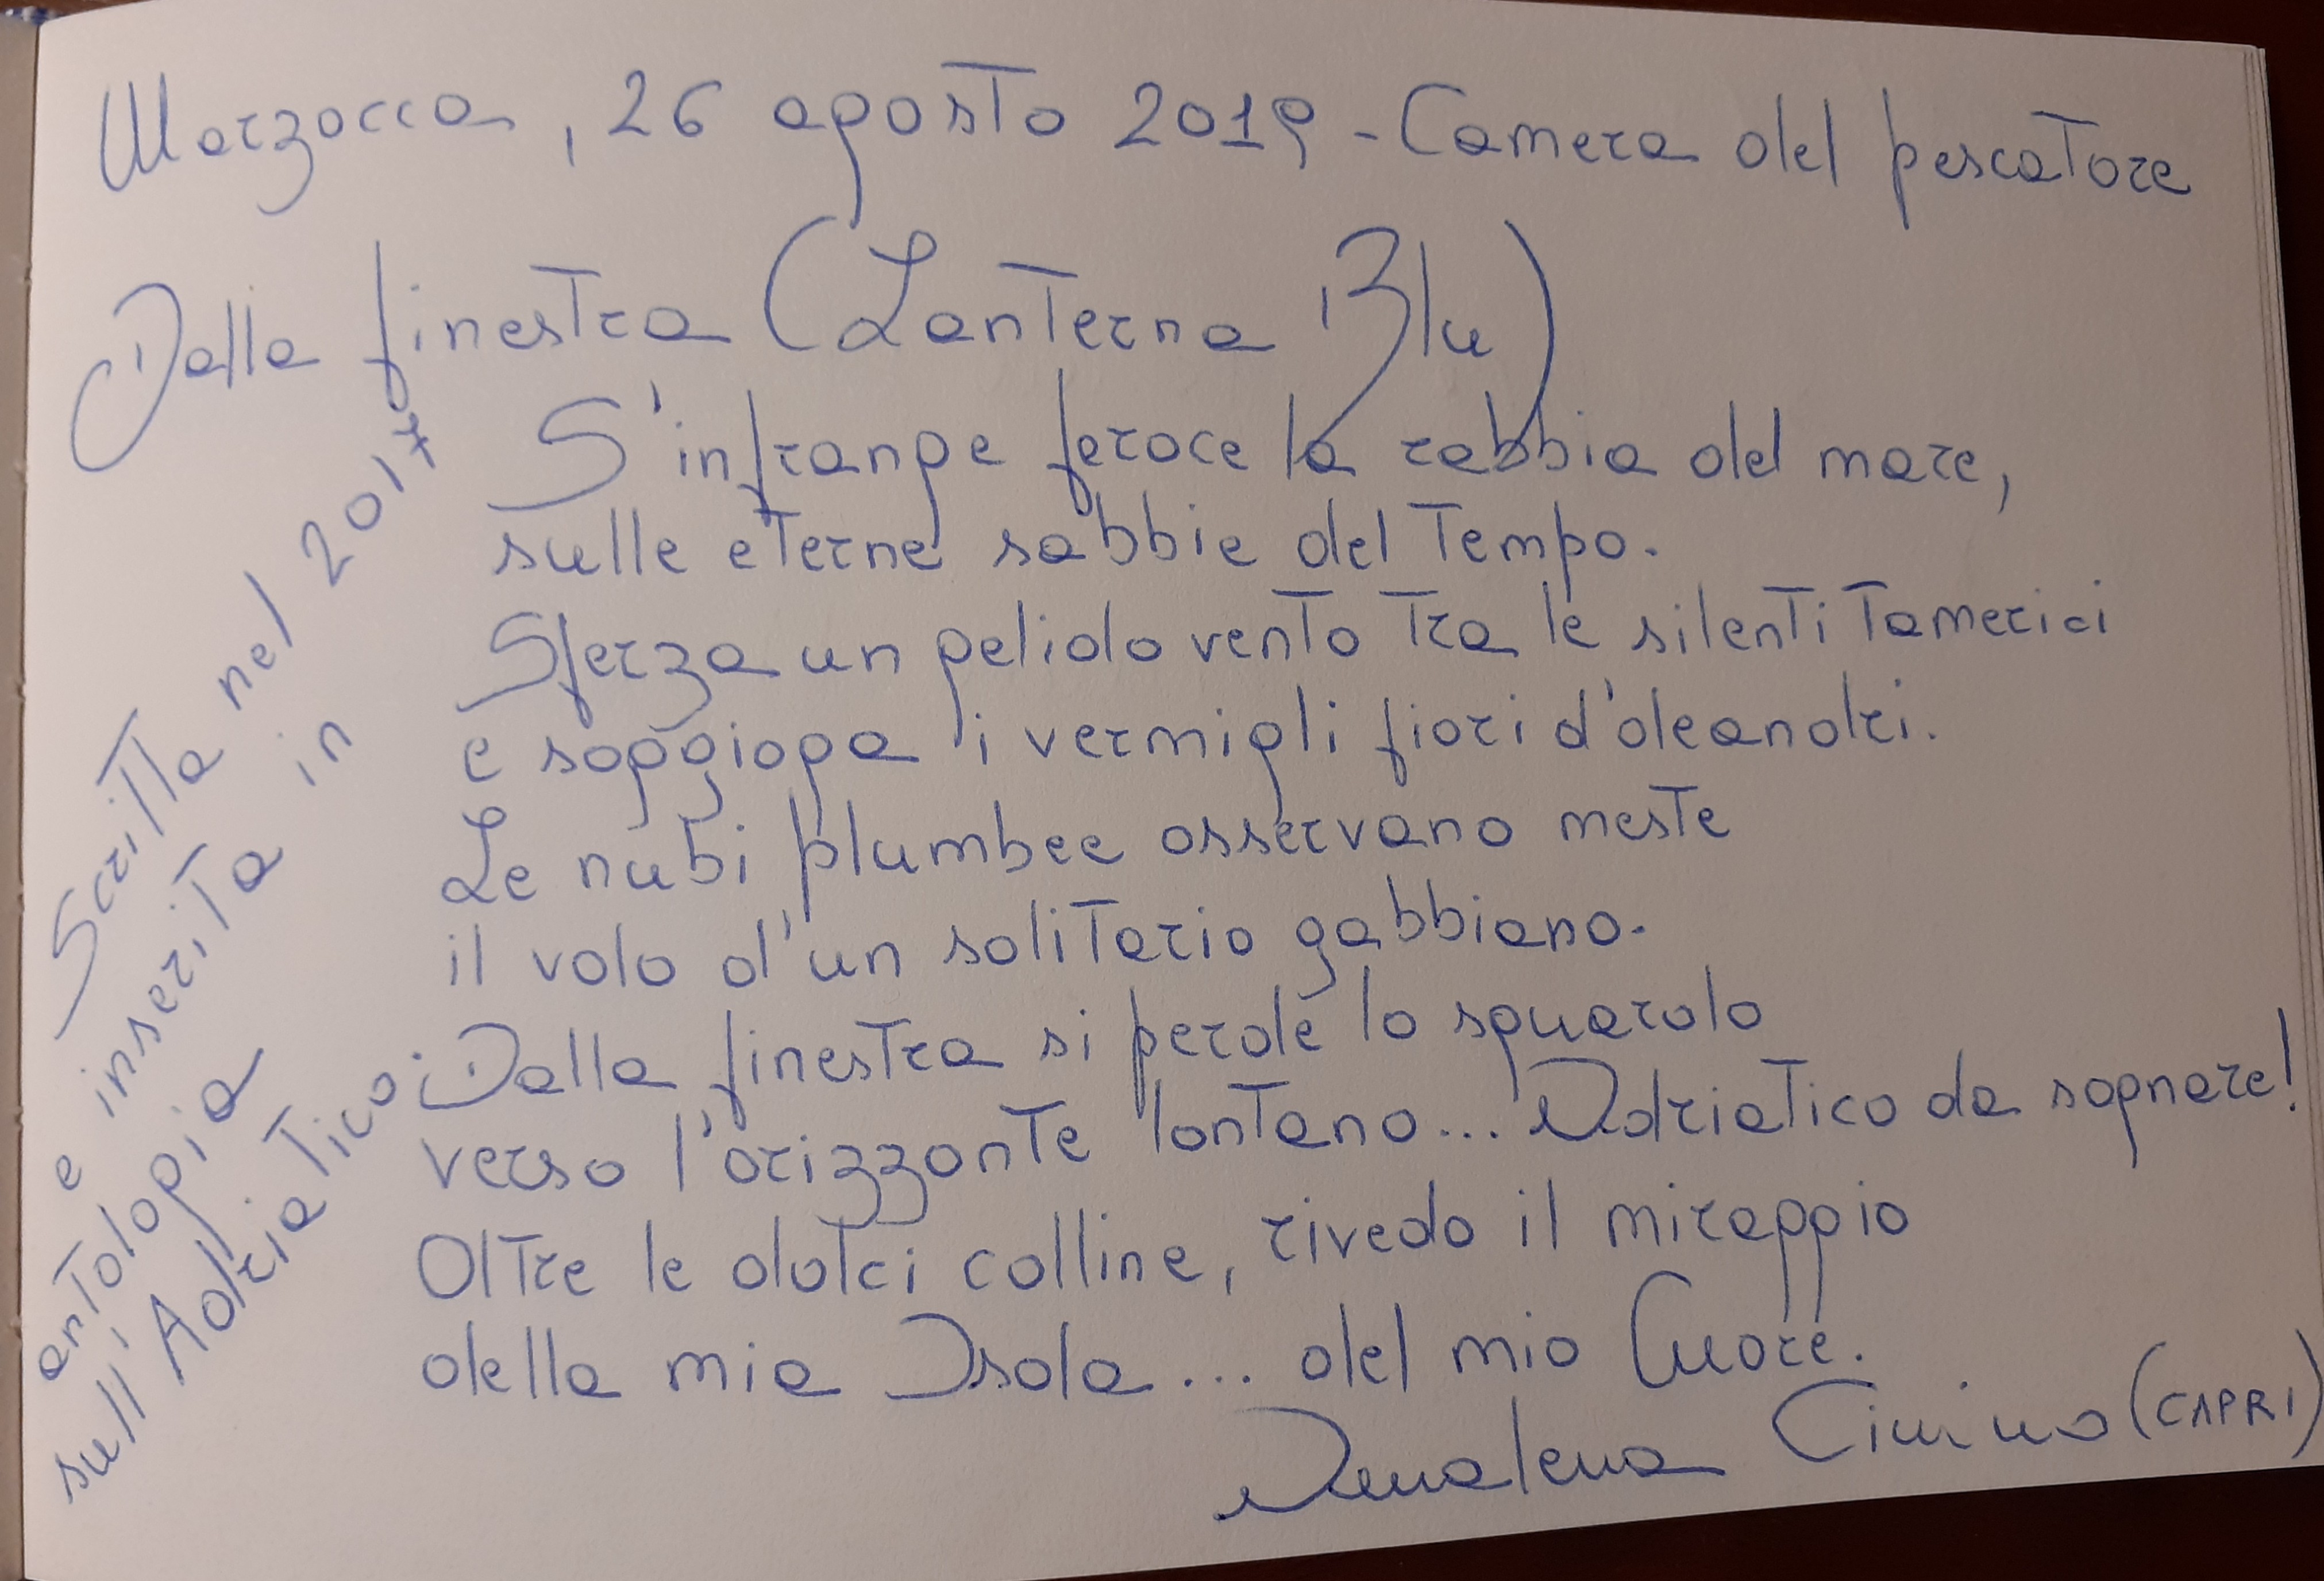 Marzocca, 26 agosto 2019 - Camera del pescatore
Dalla finestra (Lanterna Blu)
S'infrange feroce la rabbia del mare,
sulle eterne sabbie del Tempo.
Sferza un gelido vento tra le silenti tamerici
e soggioga i vermigli fiori d'oleandri.
Le nubi plumbee osservano meste
il volo d'un solitario gabbiano.
Dalla finestra si perde lo sguardo
verso l'orizzonte lontano... Adriatico da sognare!
Oltre le dolci colline, rivedo il miraggio
della mia Isola... del mio Cuore.
Annalena Cimino (CAPRI)
Scritta nel 2017
e inserita in
antologia
sull'Adriatico.